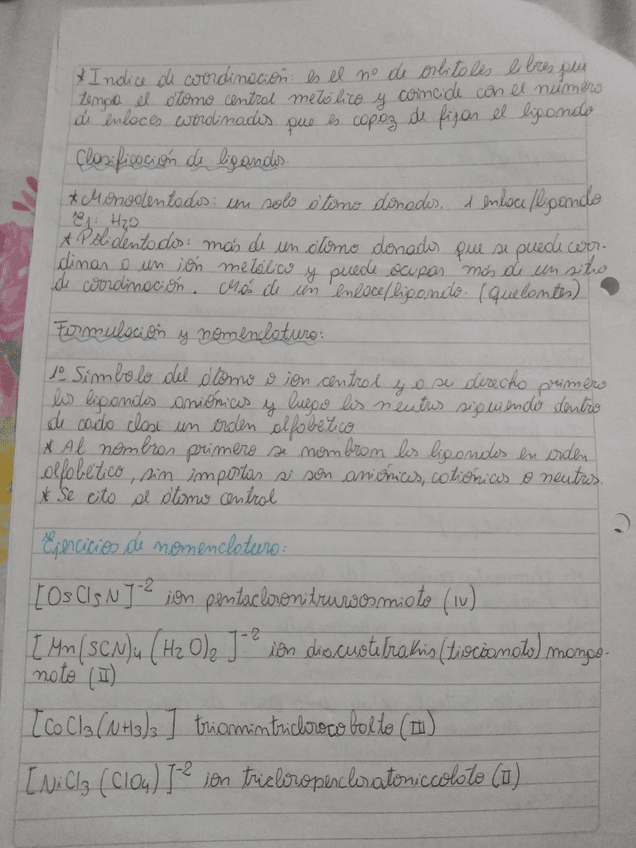 *Indice de coordinación: es el nº de orbitales libres que
tenga el átomo central metálico y coincide con el número
de enlaces coordinados que es capaz de fijar el ligando
Clasificación de ligandos.
*Monodentados: un solo átomo donador. 1 enlace/ligando
Ej: H2O
*Polidentados: más de un átomo donador que se puede coor-
dinar a un ión metálico y puede ocupar más de un sitio
de coordinación. Más de un enlace/ligando. (Quelantes)
Formulación y nomenclatura:
1º Simbolo del átomo o ion central y a su derecha primero
los ligandos aniónicos y luego los neutros siguiendo dentro
de cada clase un orden alfabético
* Al nombrar primero se nombran los ligandos en orden
alfabético, sin importar si son aniónicos, catiónicos o neutros.
* Se cita al átomo central
Ejercicios de nomenclatura:
[OsCl5N]-2 ion pentacloronitruroosmiato (IV)
[Mn(SCN)4 (H2O)2]-2 ion diacuotetrakis(tiocianato) manga-
nato (II)
[CoCl3(NH3)3] triamintriclorocobalto (III)
[NiCl3 (ClO4)]-2 ion tricloropercloratoniccolato (II)